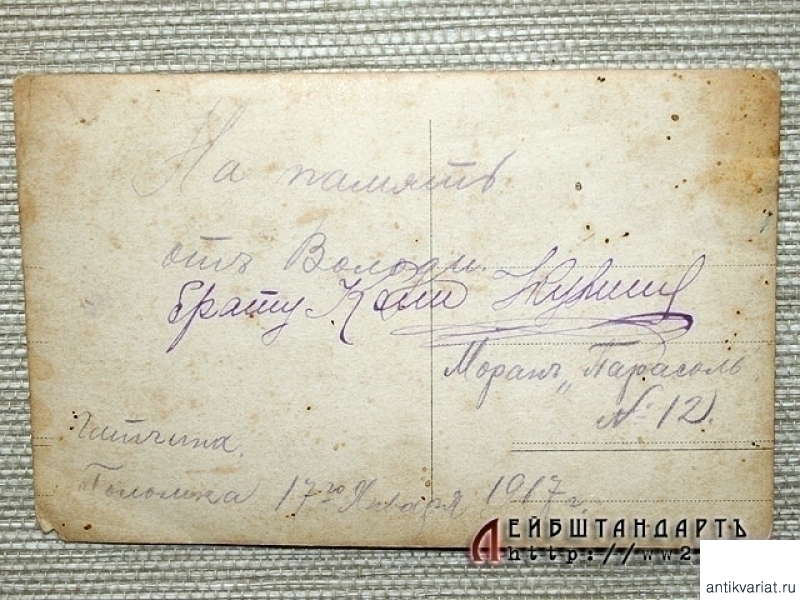 На память
отъ Володи.
брату Коле
Моранъ „Парасоль"
№ 12.
Гатчина.
17го Января 1917 г.
ЛЕЙБШТАНДАРТЪ
http://ww2
antikvariat.ru